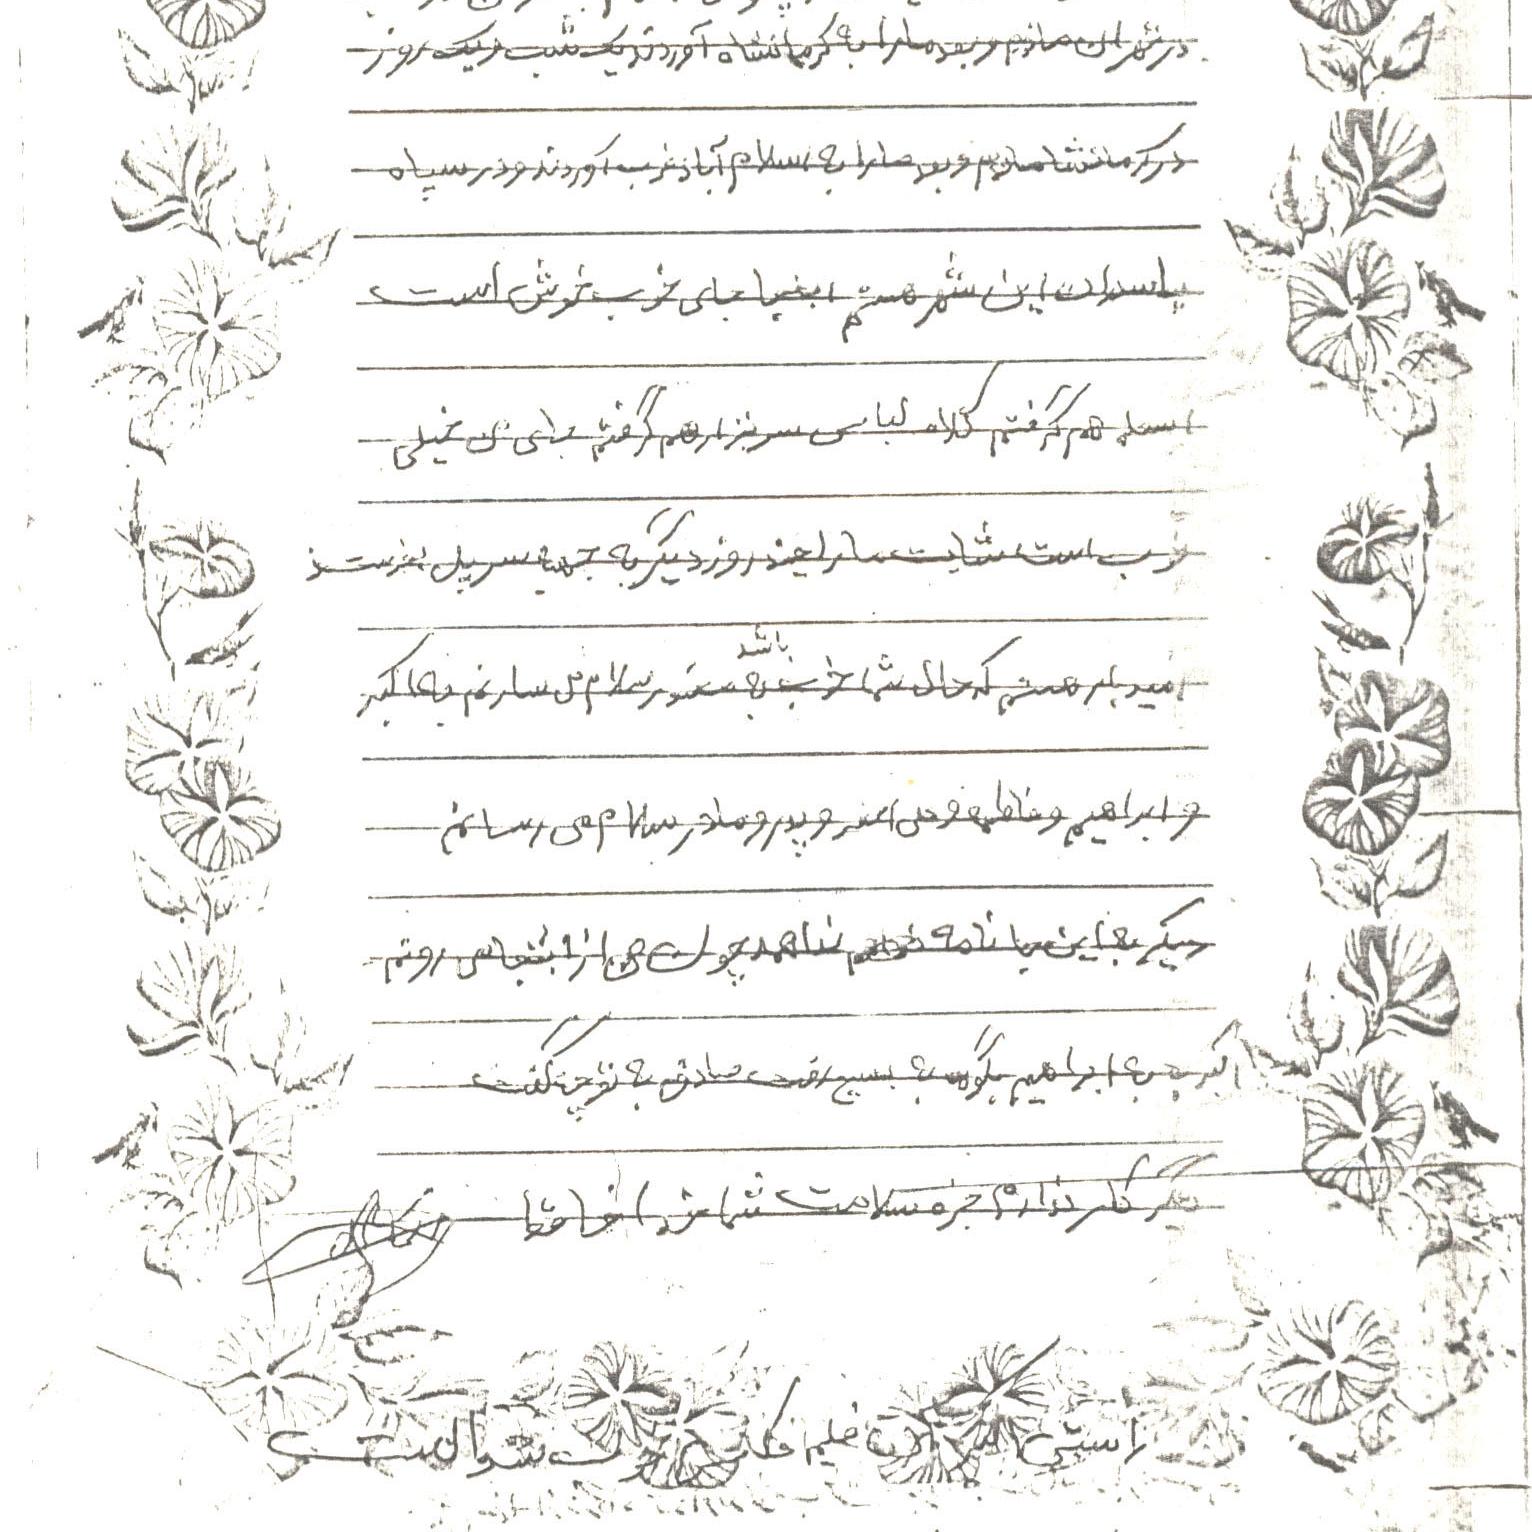 در تهران ماندم و بعد مارا به کرمانشاه آوردند یک شب و یک روز
در کرمانشاه ماندم و بعد مارا به اسلام آباد غرب آوردند و در سپاه
پاسداران این شهر هستم اینجا جای خوب خوش است
اسلحه هم گرفتم کلاه لباس سربازار هم گرفتم برای من خیلی
خوب است شایت مارا چند روز دیگر به جبهه سرپل بفرستند
باشد
امیدبار هستم که حال شما خوب به سلام می سارنم به اکبر
و ابراهیم و فاطمه و علی اصغر و پدر و مادر سلام می رسانم
دیگر به این جا نامه ندهید چون من از اینجا می روتم
اکبر به ابراهیم بگو به بسیج رفت صادق به تو چه گفت
دیگر کار ندارم جزه سلامت شما خدا حافظ
راستی اکبر آن فیلم